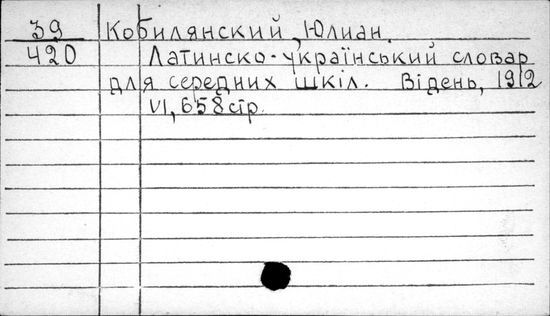 39 Кобилянский, Юлиан.
420 Латинско-український словар
для середних шкіл. Відень, 1912
VI, 658 стр.